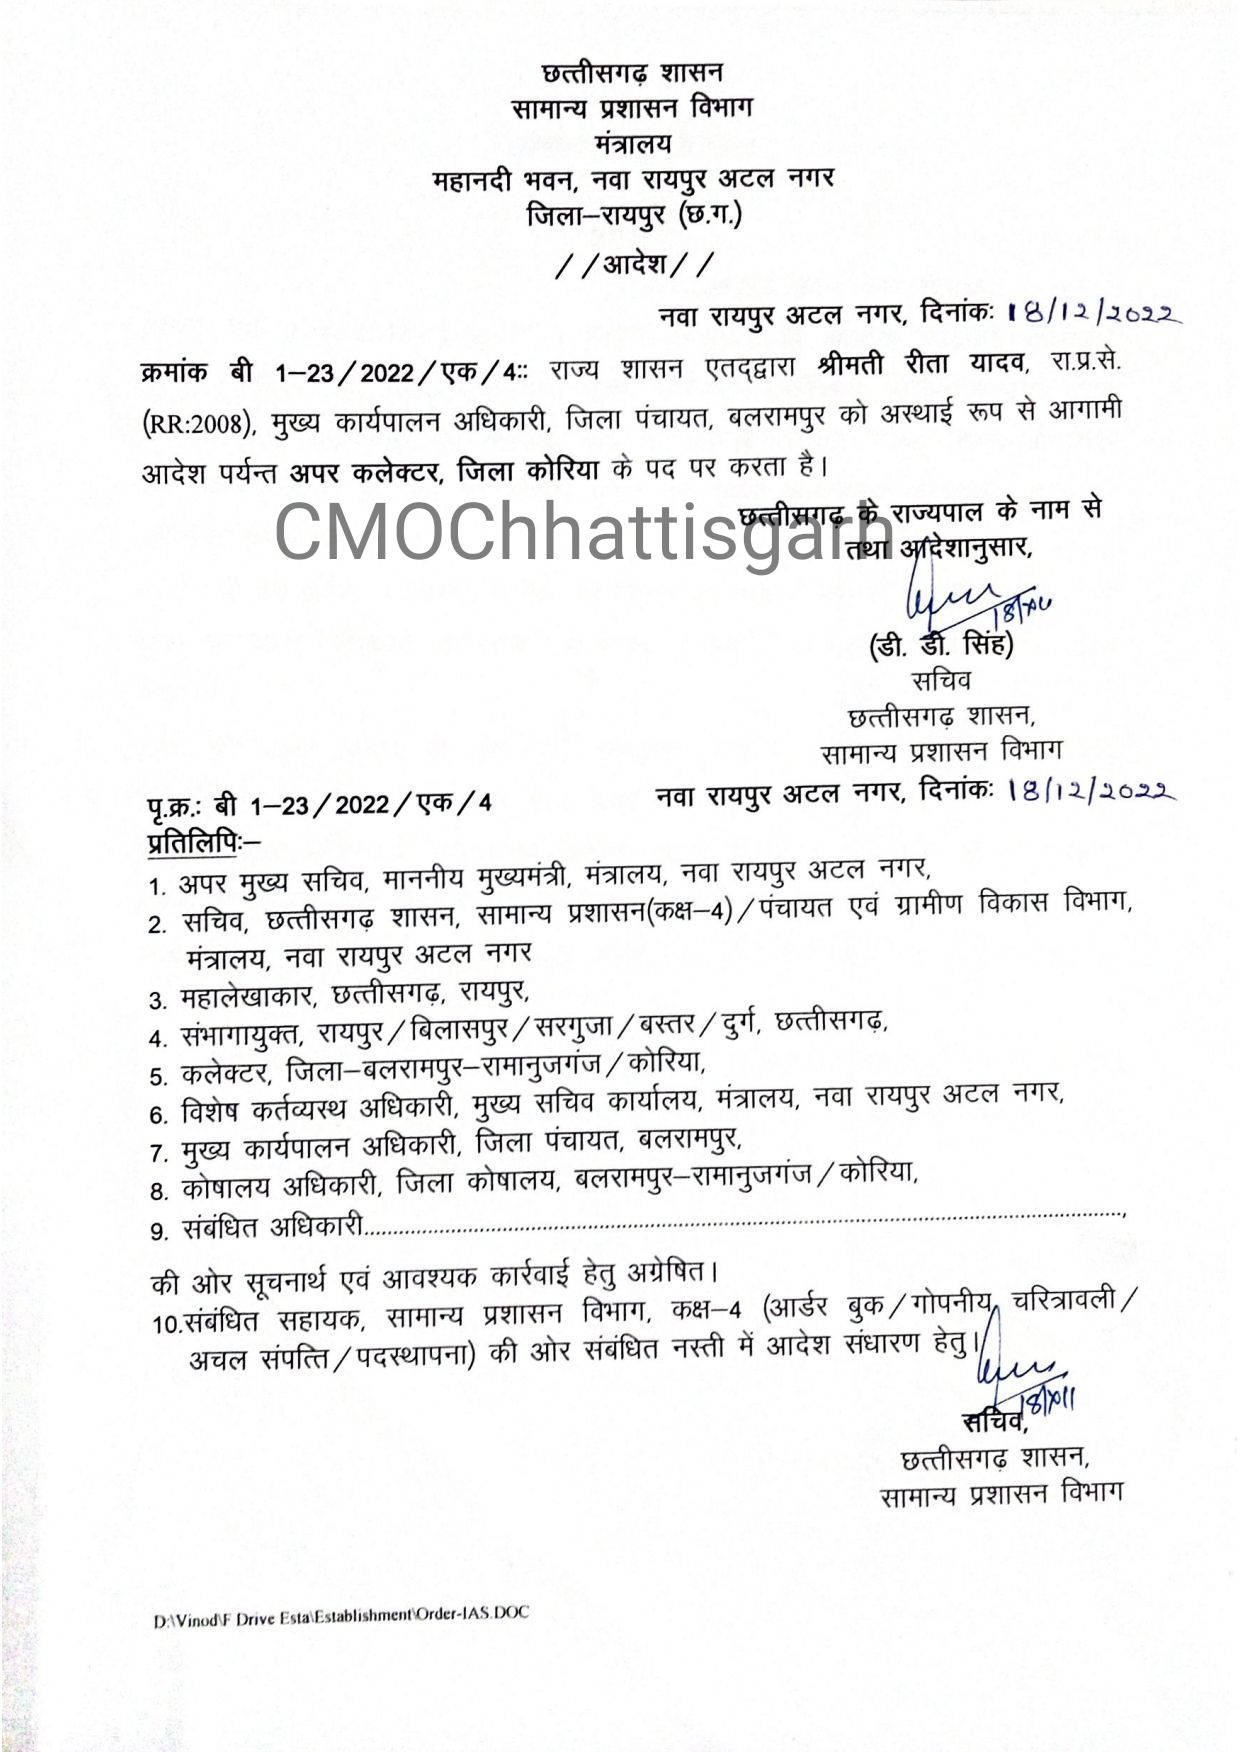 छत्तीसगढ़ शासन
सामान्य प्रशासन विभाग
मंत्रालय
महानदी भवन, नवा रायपुर अटल नगर
जिला–रायपुर (छ.ग.)
//आदेश//
नवा रायपुर अटल नगर, दिनांकः 18/12/2022
क्रमांक बी 1–23/2022/एक/4:: राज्य शासन एतद्द्वारा श्रीमती रीता यादव, रा.प्र.से.
(RR:2008), मुख्य कार्यपालन अधिकारी, जिला पंचायत, बलरामपुर को अस्थाई रूप से आगामी
आदेश पर्यन्त अपर कलेक्टर, जिला कोरिया के पद पर करता है।
CMOChhattisgarh
छत्तीसगढ़ के राज्यपाल के नाम से
तथा आदेशानुसार,
(डी. डी. सिंह)
सचिव
छत्तीसगढ़ शासन,
सामान्य प्रशासन विभाग
पृ.क्र.: बी 1–23/2022/एक/4 नवा रायपुर अटल नगर, दिनांकः 18/12/2022
प्रतिलिपिः–
1. अपर मुख्य सचिव, माननीय मुख्यमंत्री, मंत्रालय, नवा रायपुर अटल नगर,
2. सचिव, छत्तीसगढ़ शासन, सामान्य प्रशासन(कक्ष–4)/पंचायत एवं ग्रामीण विकास विभाग,
मंत्रालय, नवा रायपुर अटल नगर
3. महालेखाकार, छत्तीसगढ़, रायपुर,
4. संभागायुक्त, रायपुर/बिलासपुर/सरगुजा/बस्तर/दुर्ग, छत्तीसगढ़,
5. कलेक्टर, जिला–बलरामपुर–रामानुजगंज/कोरिया,
6. विशेष कर्तव्यस्थ अधिकारी, मुख्य सचिव कार्यालय, मंत्रालय, नवा रायपुर अटल नगर,
7. मुख्य कार्यपालन अधिकारी, जिला पंचायत, बलरामपुर,
8. कोषालय अधिकारी, जिला कोषालय, बलरामपुर–रामानुजगंज/कोरिया,
9. संबंधित अधिकारी....................................................................................................,
की ओर सूचनार्थ एवं आवश्यक कार्रवाई हेतु अग्रेषित।
10.संबंधित सहायक, सामान्य प्रशासन विभाग, कक्ष–4 (आर्डर बुक/गोपनीय चरित्रावली/
अचल संपत्ति/पदस्थापना) की ओर संबंधित नस्ती में आदेश संधारण हेतु।
सचिव,
छत्तीसगढ़ शासन,
सामान्य प्रशासन विभाग
D:\Vinod\F Drive Esta\Establishment\Order-IAS.DOC